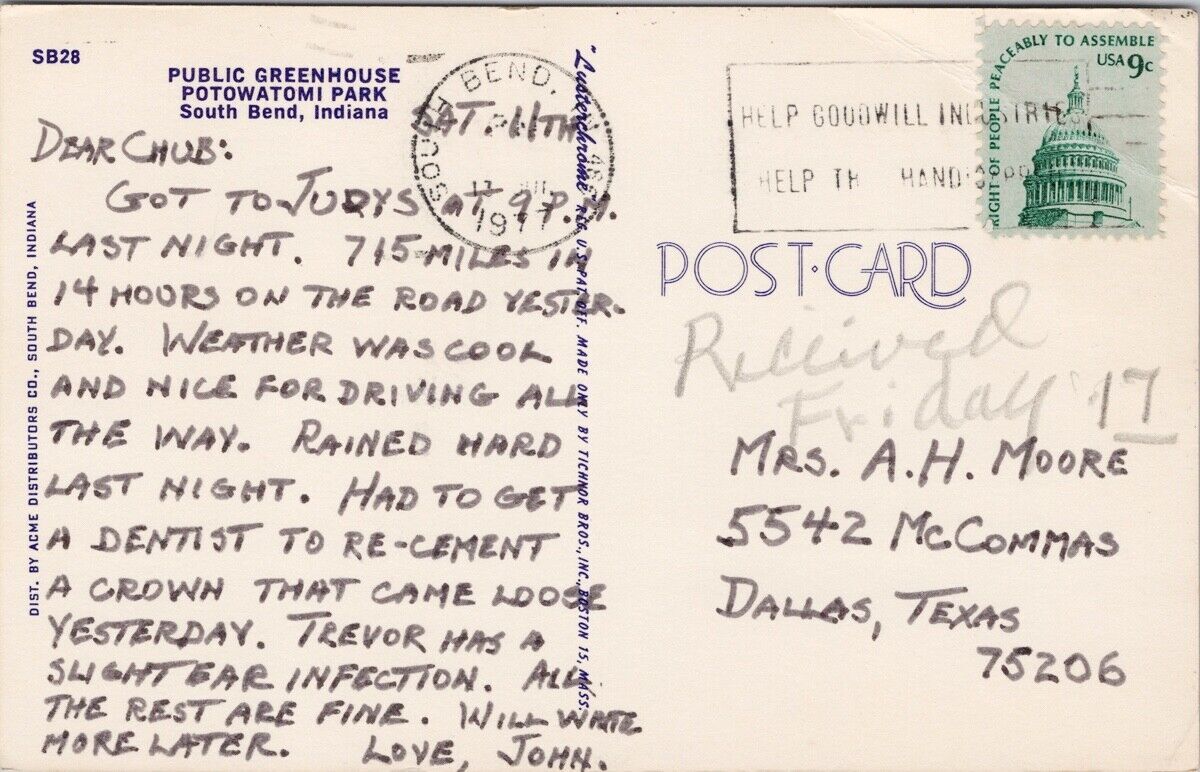 SB28
PUBLIC GREENHOUSE
POTOWATOMI PARK
South Bend, Indiana
SAT. 11TH
DEAR CHUB:
GOT TO JUDYS AT 9 P.M.
LAST NIGHT. 715 MILES IN
14 HOURS ON THE ROAD YESTER-
DAY. WEATHER WAS COOL
AND NICE FOR DRIVING ALL
THE WAY. RAINED HARD
LAST NIGHT. HAD TO GET
A DENTIST TO RE-CEMENT
A CROWN THAT CAME LOOSE
YESTERDAY. TREVOR HAS A
SLIGHT EAR INFECTION. ALL
THE REST ARE FINE. WILL WRITE
MORE LATER. LOVE, JOHN.
DIST. BY ACME DISTRIBUTORS CO., SOUTH BEND, INDIANA
"Lusterchrome" REG. U.S. PAT. OFF. MADE ONLY BY TICHNOR BROS., INC., BOSTON 15, MASS.
SOUTH BEND, IN
1977
HELP GOODWILL INDUSTRIES
HELP THE HANDICAPPED
RIGHT OF PEOPLE PEACEABLY TO ASSEMBLE
USA 9c
POST·CARD
Received
Friday 17
MRS. A.H. MOORE
5542 MCCOMMAS
DALLAS, TEXAS
75206